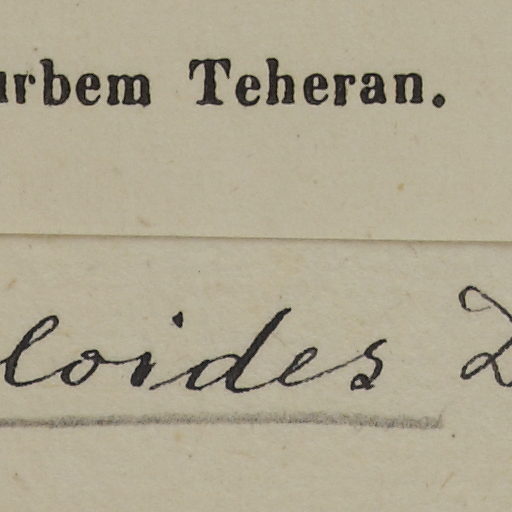 urbem Teheran.
loides D